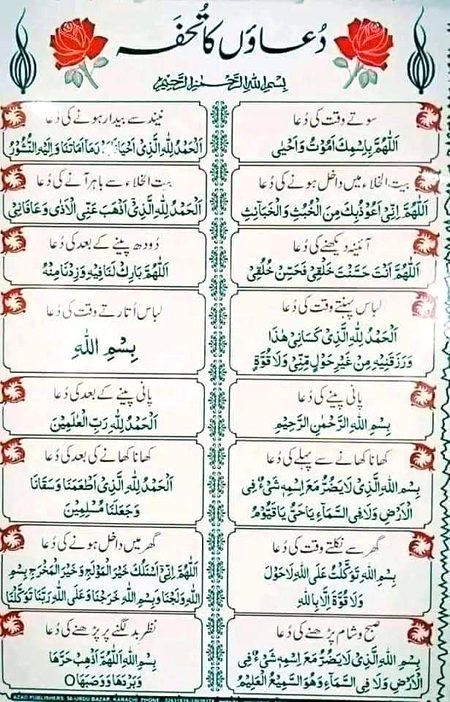 دُعاؤں کا تُحفَہ
بِسْمِ اللهِ الرَّحْمٰنِ الرَّحِيْمِ
سوتے وقت کی دُعا
اَللّٰهُمَّ بِاسْمِكَ اَمُوْتُ وَاَحْيٰى
نیند سے بیدار ہونے کی دُعا
اَلْحَمْدُ لِلّٰهِ الَّذِىْ اَحْيَانَا بَعْدَ مَا اَمَاتَنَا وَاِلَيْهِ النُّشُوْرُ
بیت الخلاء میں داخل ہونے کی دُعا
اَللّٰهُمَّ اِنِّىْ اَعُوْذُبِكَ مِنَ الْخُبُثِ وَالْخَبَائِثِ
بیت الخلاء سے باہر آنے کی دُعا
اَلْحَمْدُ لِلّٰهِ الَّذِىْ اَذْهَبَ عَنِّى الْاَذٰى وَعَافَانِىْ
آئینہ دیکھنے کی دُعا
اَللّٰهُمَّ اَنْتَ حَسَّنْتَ خَلْقِىْ فَحَسِّنْ خُلُقِىْ
دُودھ پینے کے بعد کی دُعا
اَللّٰهُمَّ بَارِكْ لَنَا فِيْهِ وَزِدْنَا مِنْهُ
لباس پہنتے وقت کی دُعا
اَلْحَمْدُ لِلّٰهِ الَّذِىْ كَسَانِىْ هٰذَا
وَرَزَقَنِيْهِ مِنْ غَيْرِ حَوْلٍ مِّنِّىْ وَلَا قُوَّةٍ
لباس اُتارتے وقت کی دُعا
بِسْمِ اللهِ
پانی پینے کی دُعا
بِسْمِ اللهِ الرَّحْمٰنِ الرَّحِيْمِ
پانی پینے کے بعد کی دُعا
اَلْحَمْدُ لِلّٰهِ رَبِّ الْعٰلَمِيْنَ
کھانا کھانے سے پہلے کی دُعا
بِسْمِ اللهِ الَّذِىْ لَا يَضُرُّ مَعَ اسْمِهٖ شَىْءٌ فِى
الْاَرْضِ وَلَا فِى السَّمَآءِ يَا حَىُّ يَا قَيُّوْمُ
کھانا کھانے کی بعد کی دُعا
اَلْحَمْدُ لِلّٰهِ الَّذِىْ اَطْعَمَنَا وَسَقَانَا
وَجَعَلَنَا مُسْلِمِيْنَ
گھر سے نکلتے وقت کی دُعا
بِسْمِ اللهِ تَوَكَّلْتُ عَلَى اللهِ لَا حَوْلَ
وَلَا قُوَّةَ اِلَّا بِاللهِ
گھر میں داخل ہونے کی دُعا
اَللّٰهُمَّ اِنِّىْ اَسْئَلُكَ خَيْرَ الْمَوْلَجِ وَخَيْرَ الْمَخْرَجِ بِسْمِ
اللهِ وَلَجْنَا وَبِسْمِ اللهِ خَرَجْنَا وَعَلَى اللهِ رَبِّنَا تَوَكَّلْنَا
صبح و شام پڑھنے کی دُعا
بِسْمِ اللهِ الَّذِىْ لَا يَضُرُّ مَعَ اسْمِهٖ شَىْءٌ فِى
الْاَرْضِ وَلَا فِى السَّمَآءِ وَهُوَ السَّمِيْعُ الْعَلِيْمُ
نظرِ بد لگنے پر پڑھنے کی دُعا
بِسْمِ اللهِ اَللّٰهُمَّ اَذْهِبْ حَرَّهَا
وَبَرْدَهَا وَوَصَبَهَا O
AZAD PUBLISHERS 56-URDU BAZAR, KARACHI PHONE